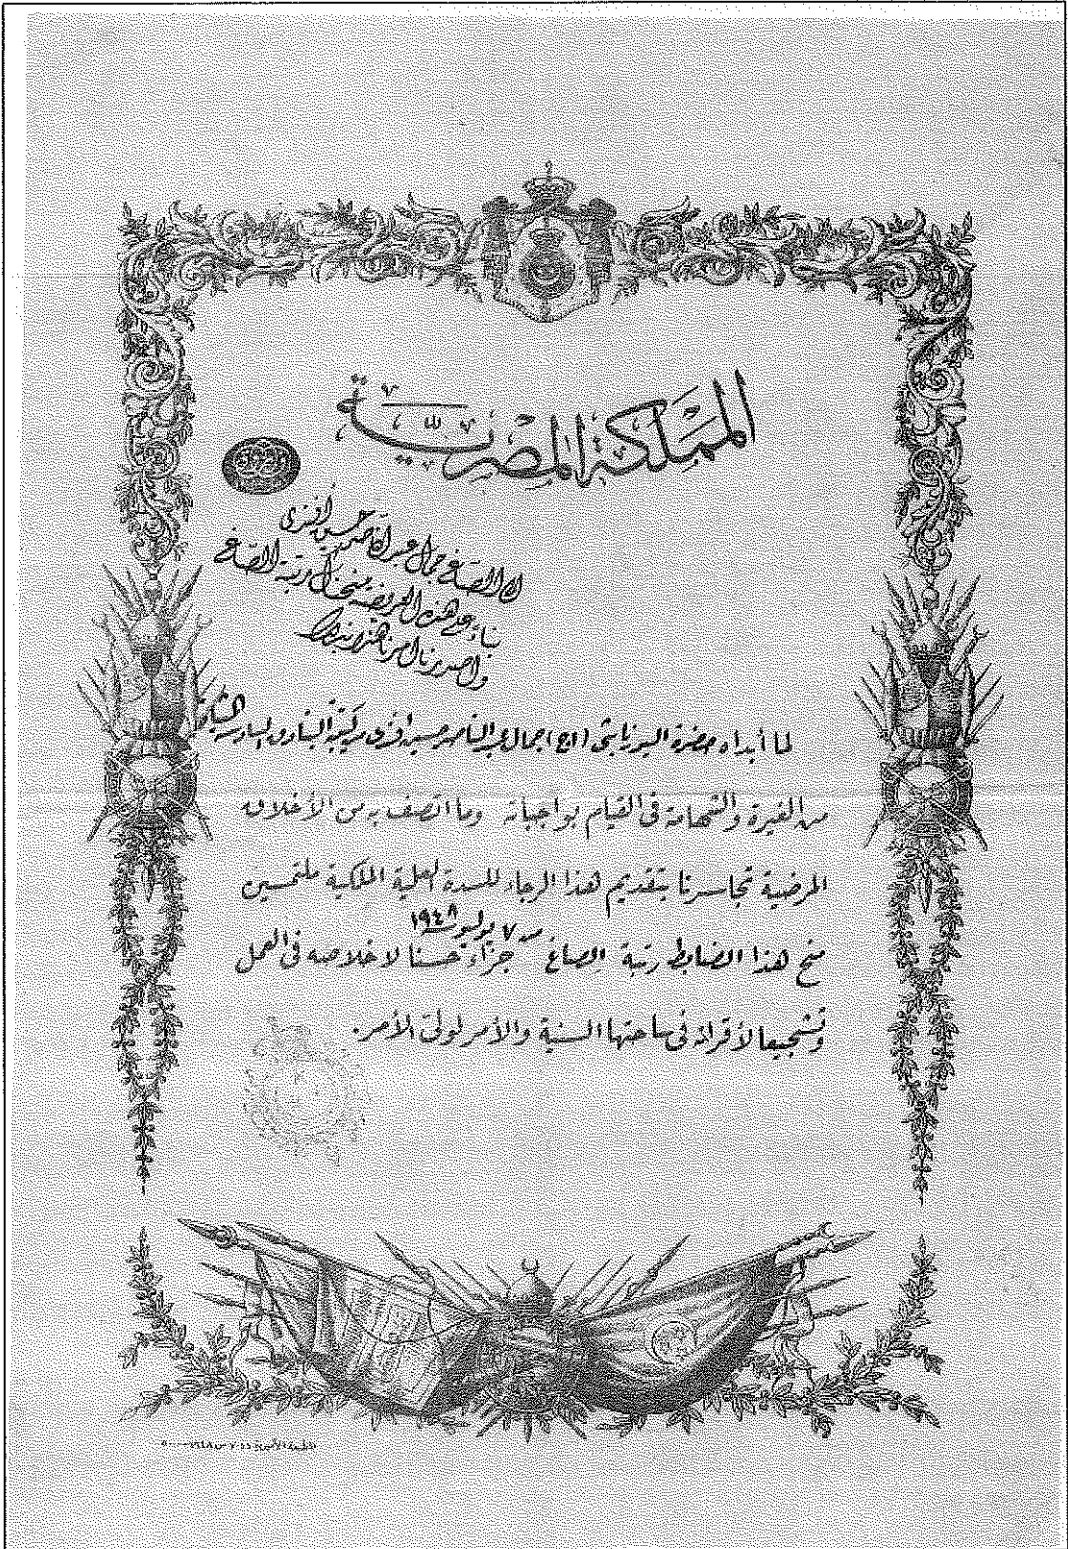 المملكة المصرية
الى الصاغ جمال عبد الناصر حسين أفندى
بناء على هذه العريضة منحناك رتبة الصاغ
وأصدرنا أمرنا هذا
لما أبداه حضرة اليوزباشى (ا ح) جمال عبد الناصر حسين افندى من كتيبة البنادق السادسة المشاة
من الغيرة والشهامة فى القيام بواجباته وما اتصف به من الأخلاق
المرضية تجاسرنا بتقديم هذا الرجاء للسدة العلية الملكية ملتمسين
منح هذا الضابط رتبة الصاغ من ٧ يوليو ١٩٤٨ جزاءً حسنا لاخلاصه فى العمل
وتشجيعا لأقرانه فى ساحتها السنية والأمر لولى الأمر.